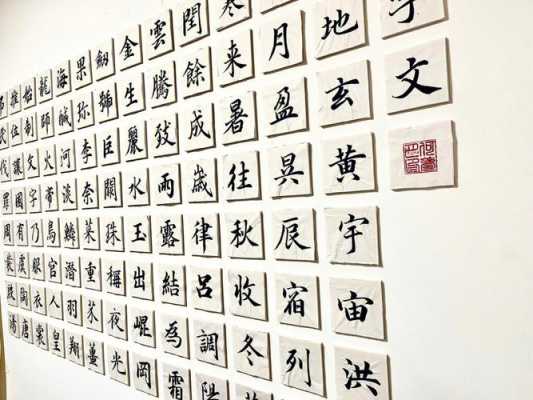 文
地玄黄宇宙洪
月盈昃辰宿列
来暑往秋收冬
閏餘成歳律呂調陽
雲騰致雨露結為霜
金生麗水玉出崐岡
劒號巨闕珠稱夜光
果珎李奈菜重芥薑
海鹹河淡鱗潜羽翔
龍師火帝鳥官人皇
始制文字乃服衣裳
推位讓國有虞陶唐
民伐罪周發殷湯